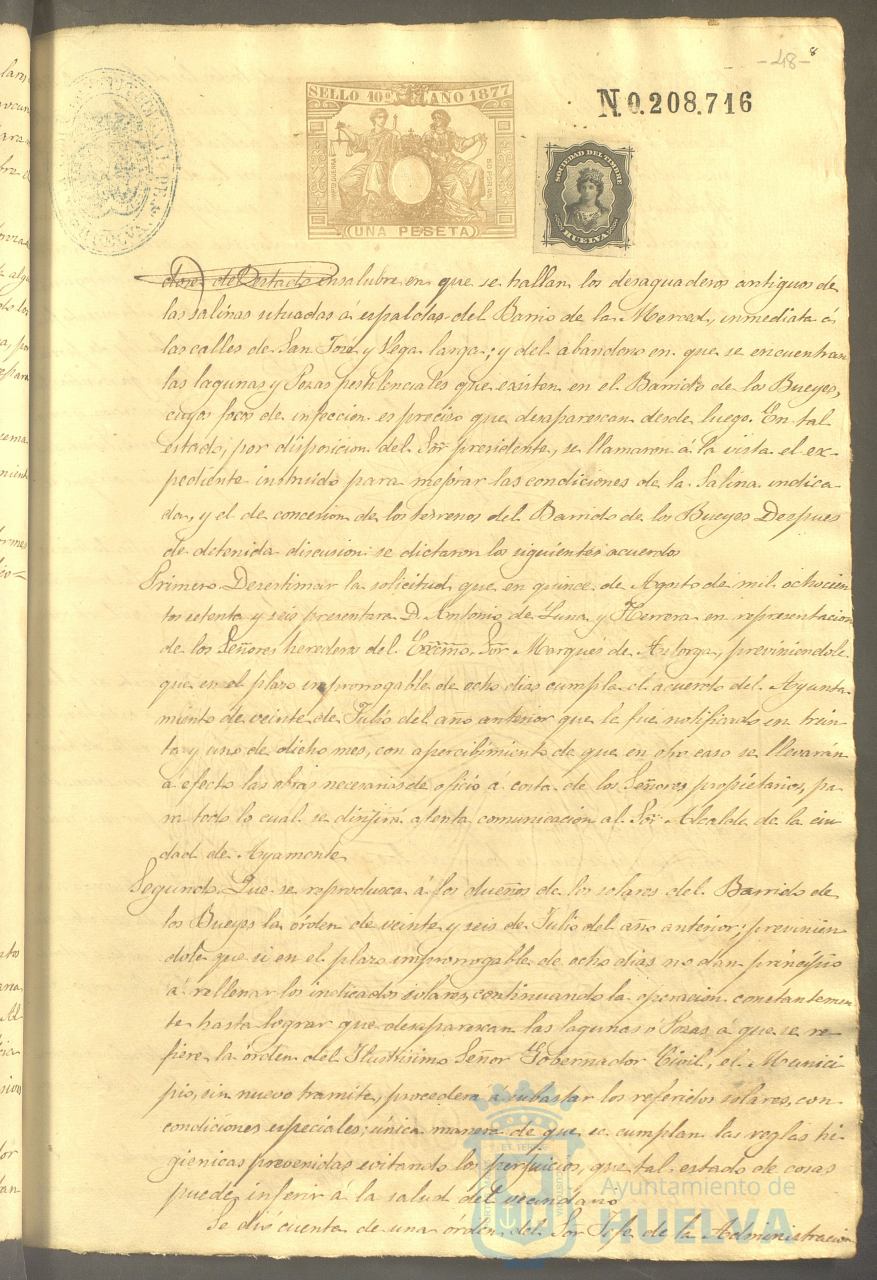 -48- 8
SELLO 10º AÑO 1877
UNA PESETA
N.0.208.716
SOCIEDAD DEL TIMBRE
HUELVA
insalubre en que se hallan los desaguaderos antiguos de
las Salinas situadas á espaldas del Barrio de la Merced, inmediata á
las calles de San José y Vega larga; y del abandono en que se encuentran
las lagunas y Pozas pestilenciales que existen en el Barrido de los Bueyes,
cuyos focos de infeccion es preciso que desaparescan desde luego. En tal
estado, por disposicion del Sor presidente, se llamaron á la vista el ex-
pediente instruido para mejorar las condiciones de la Salina indica-
da, y el de concesion de los terrenos del Barrido de los Bueyes Despues
de detenida discusion se dictaron los siguientes acuerdos
Primero Desestimar la solicitud que en quince de Agosto de mil ochocien
tos setenta y seis presentara D. Antonio de Luna y Herrera en representacion
de los Señores herederos del Excmo. Sor Marqués de Astorga, previniendole
que en el plazo improrrogable de ocho dias cumpla el acuerdo del Ayunta-
miento de veinte de Julio del año anterior que le fue notificado en trein-
ta y uno de dicho mes, con apercibimiento de que en otro caso se llevarán
á efecto las obras necesarias de oficio á costa de los Señores propietarios, pa-
ra todo lo cual se dirijirá atenta comunicacion al Sor Alcalde de la ciu
dad de Ayamonte
Segundo Que se reproduzca á los dueños de los solares del Barrido de
los Bueyes la órden de veinte y seis de Julio del año anterior; previnien
dole que si en el plazo improrrogable de ocho dias no dan principio
á rellenar los indicados solares, continuando la operacion constantemen
te hasta lograr que desaparescan las lagunas ó Pozas á que se re-
fiere la órden del Ilustrisimo Señor Gobernador Civil, el Munici
pio, sin nuevo tramite, procederá á subastar los referidos solares, con
condiciones especiales; única manera de que se cumplan las reglas hi-
gienicas prevenidas evitando los perjuicios, que tal estado de cosas
puede inferir á la salud del vecindario
Se dió cuenta de una órden del Sor Jefe de la Administracion
Ayuntamiento de
HUELVA